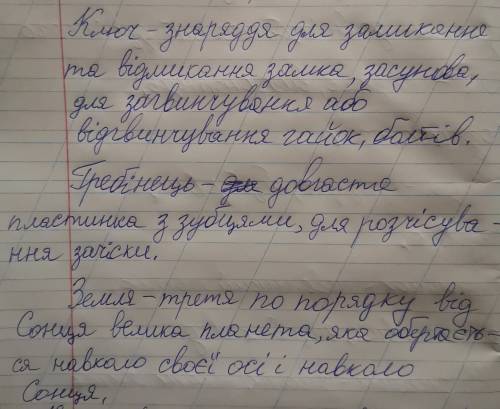 Ключ - знаряддя для замикання
та відмикання замка, засунова,
для загвинчування або
відгвинчування гайок, болтів.
Гребінець - довгаста
пластинка з зубцями, для розчісува-
ння зачіски.
Земля - третя по порядку від
Сонця велика планета, яка обертаєть-
ся навколо своєї осі і навколо
Сонця.